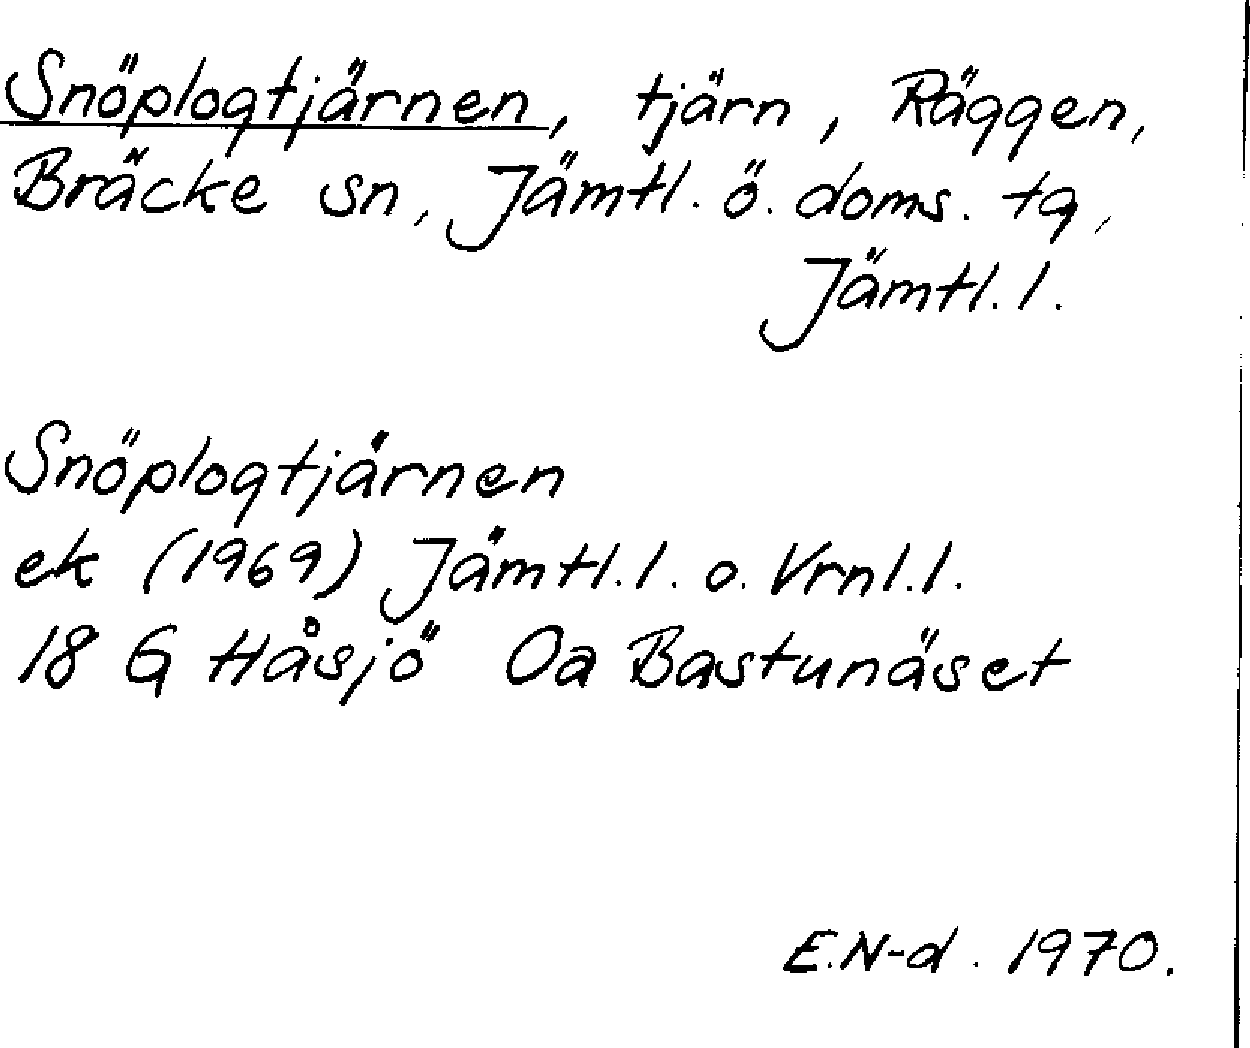 Snöplogtjärnen, tjärn, Räggen,
Bräcke sn, Jämtl. ö. doms. tg,
Jämtl. l.
Snöplogtjärnen
ek (1969) Jämtl. l. o. Vrnl. l.
18 G Håsjö 0a Bastunäset
E.N-d. 1970.